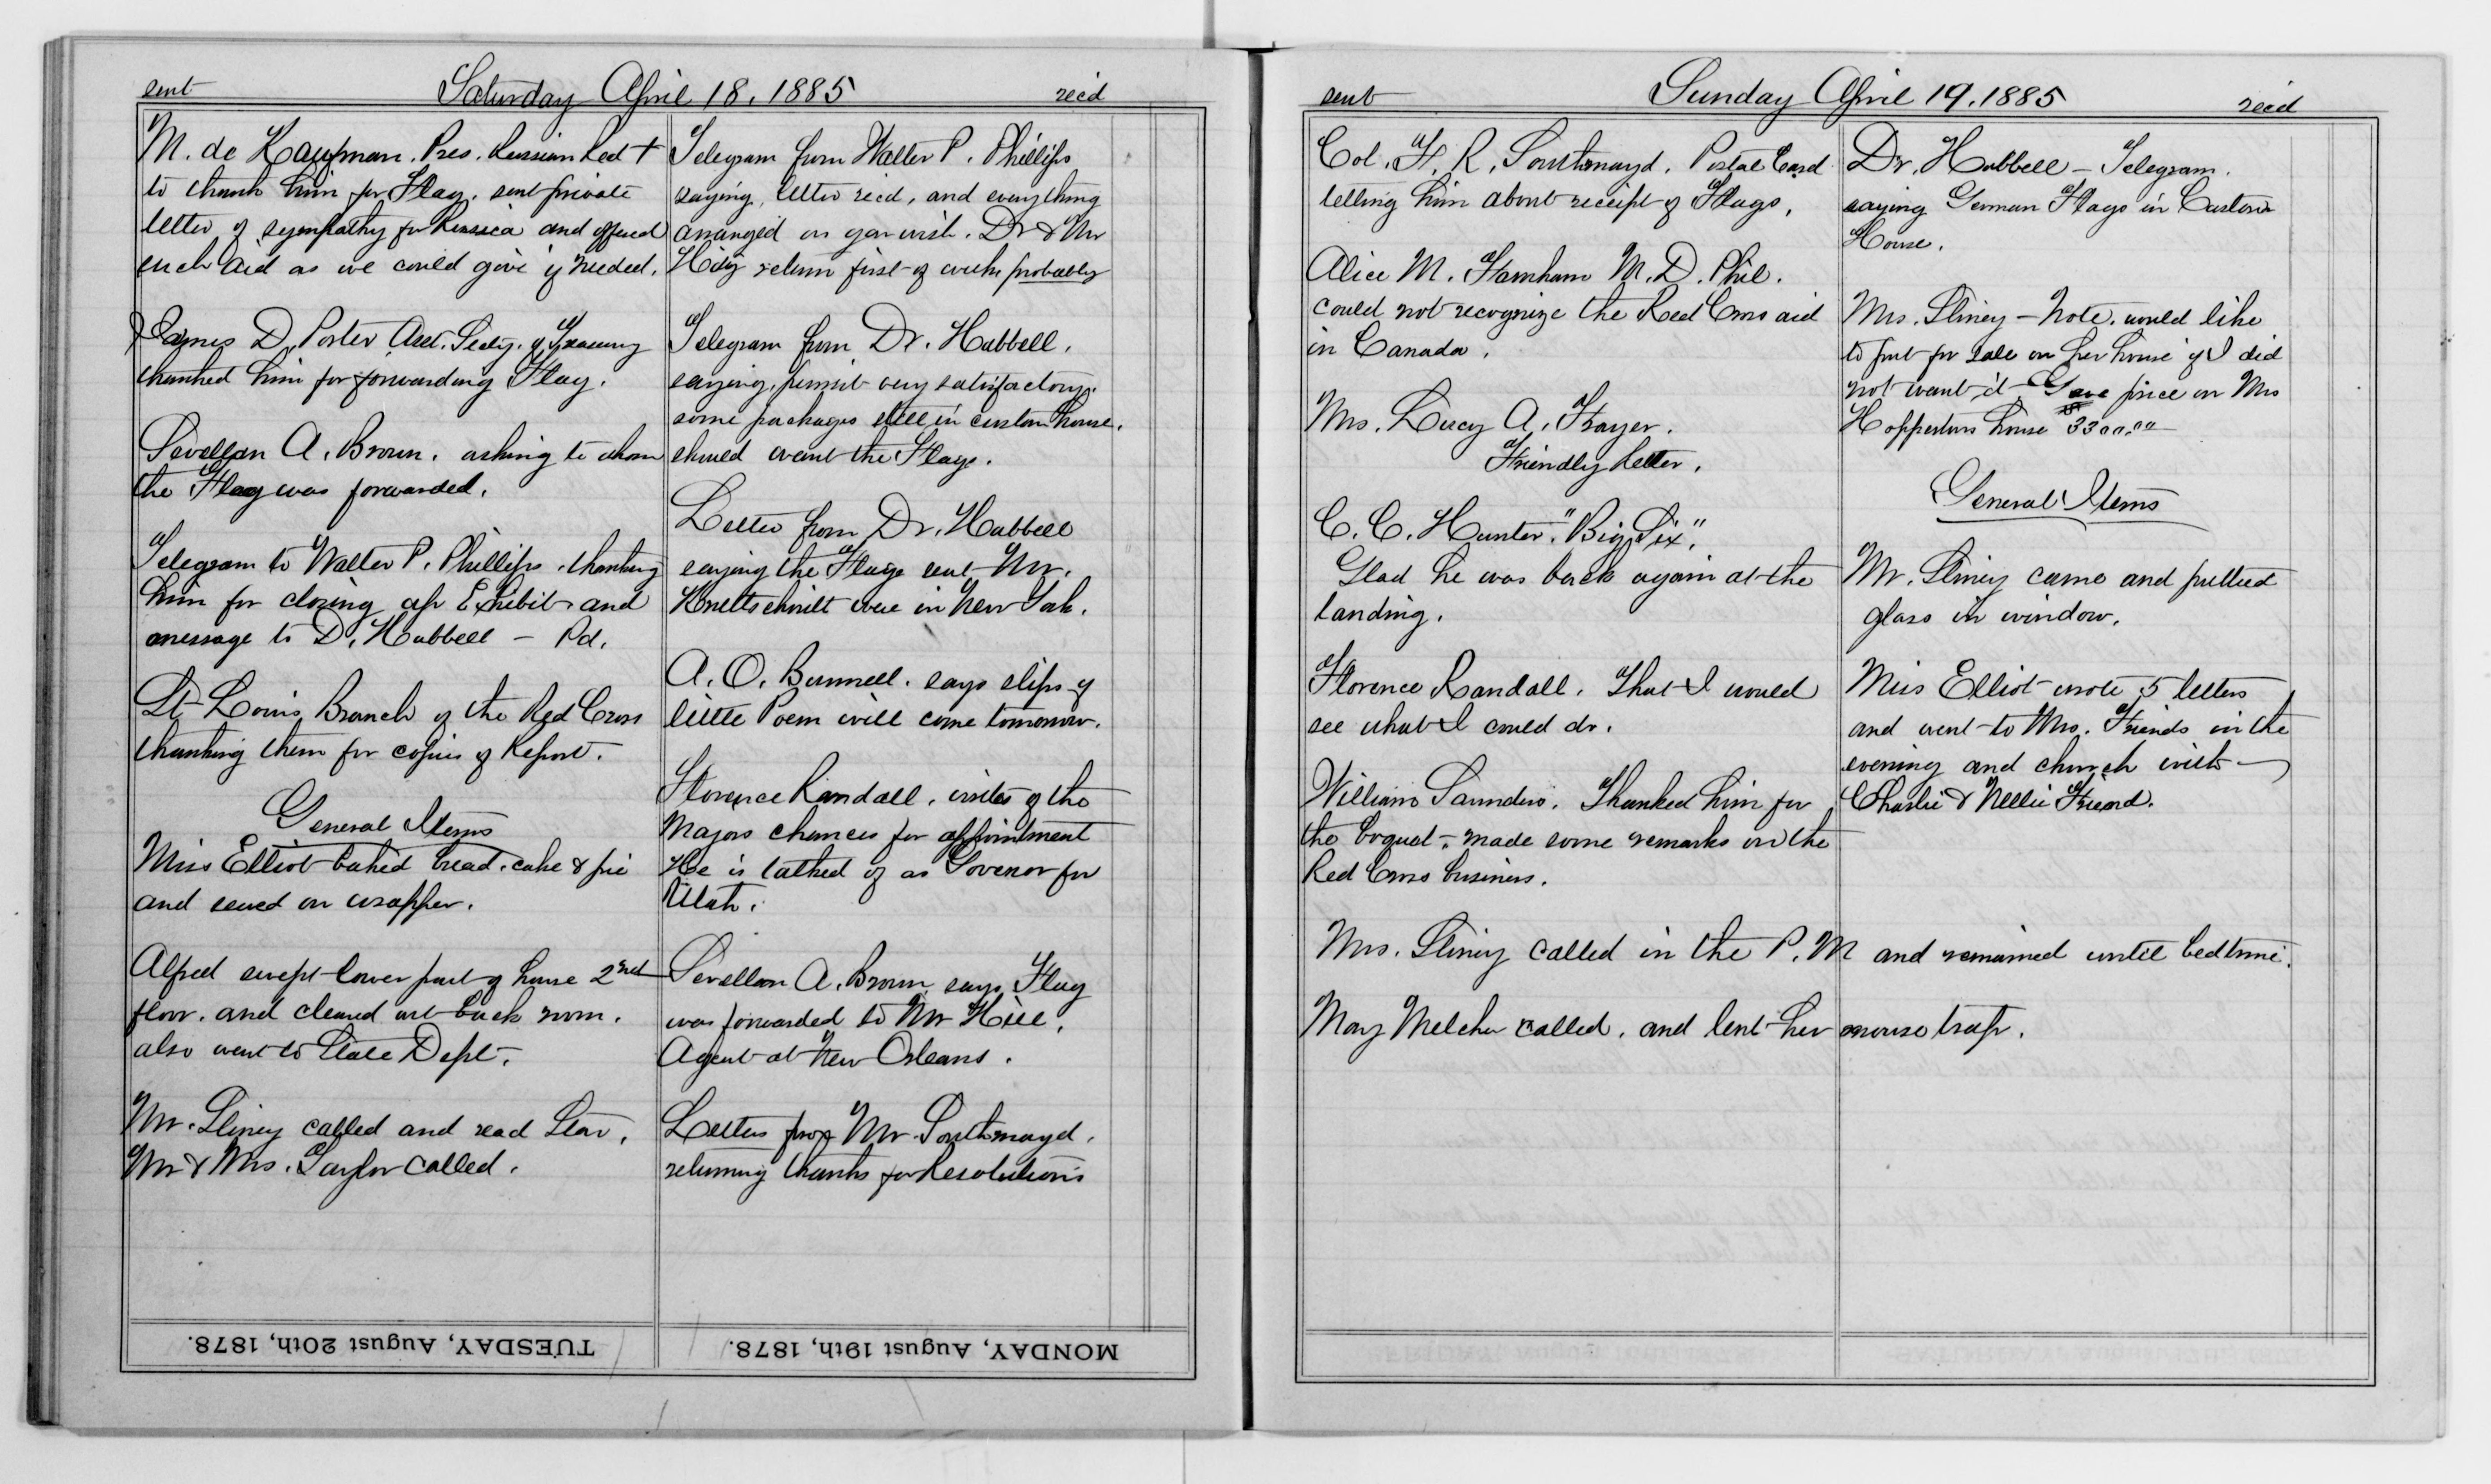 sent Saturday April 18. 1885 rec'd
M. de Kaufman. Pres. Russian Red +
to thank him for Flag, sent private
letter of sympathy for Russia and offered
such aid as we could give if needed.
James D. Porter Asst. Secty. of Treasury
thanked him for forwarding Flag.
Sevellon A. Brown. asking to whom
the Flag was forwarded.
Telegram to Walter P. Phillips. thanking
him for closing up Exhibit and
message to D. Hubbell — Pd.
St Louis Branch of the Red Cross
thanking them for copies of Report.
General Items
Miss Elliot baked bread. cake & pie
and sewed on wrapper.
Alfred swept lower part of house 2nd
floor. and cleaned out back room.
also went to State Dept.
Mr. Stiney called and read Star.
Mr & Mrs. Taylor called.
Telegram from Walter P. Phillips
saying, letter rec'd, and everything
arranged as you wish. Dr & Mr
return first of week probably
Telegram from Dr. Hubbell.
saying, permit very satisfactory.
some packages still in custom house.
should want the Flags.
Letter from Dr. Hubbell
saying the Flags sent Mr.
were in New York.
A. O. Bunnell. says slips of
little Poem will come tomorrow.
Florence Randall. writes of the
Majors chances for appointment
He is talked of as Govenor for
Utah.
Sevellon A. Brown. says Flag
was forwarded to Mr Hill.
Agent at New Orleans.
Letter from Mr. Southmayd.
returning thanks for Resolutions
TUESDAY, August 20th, 1878.
MONDAY, August 19th, 1878.
sent Sunday April 19. 1885 rec'd
Col. F. R. Southmayd. Postal Card
telling him about receipt of Flags.
Alice M. Farnham M. D. Phil.
could not recognize the Red Cross aid
in Canada.
Mrs. Lucy A. Frayer.
Friendly Letter.
C. C. Hunter. "Big Six".
Glad he was back again at the
landing.
Florence Randall. That I would
see what I could do.
William Saunders. Thanked him for
the boquet. made some remarks on the
Red Cross business.
Dr. Hubbell — Telegram.
saying German Flags in Custom
House.
Mrs. Stiney — Note. would like
to put for sale on her house if I did
not want it. Gave price on Mrs
house $3300.00
General Items
Mr. Stiney came and puttied
glass in window.
Miss Elliot wrote 5 letters
and went to Mrs. Friends in the
evening and church with
Charlie & Nellie Friend.
Mrs. Stiney called in the P. M and remained until bedtime.
May Melcher called. and lent her mouse trap.